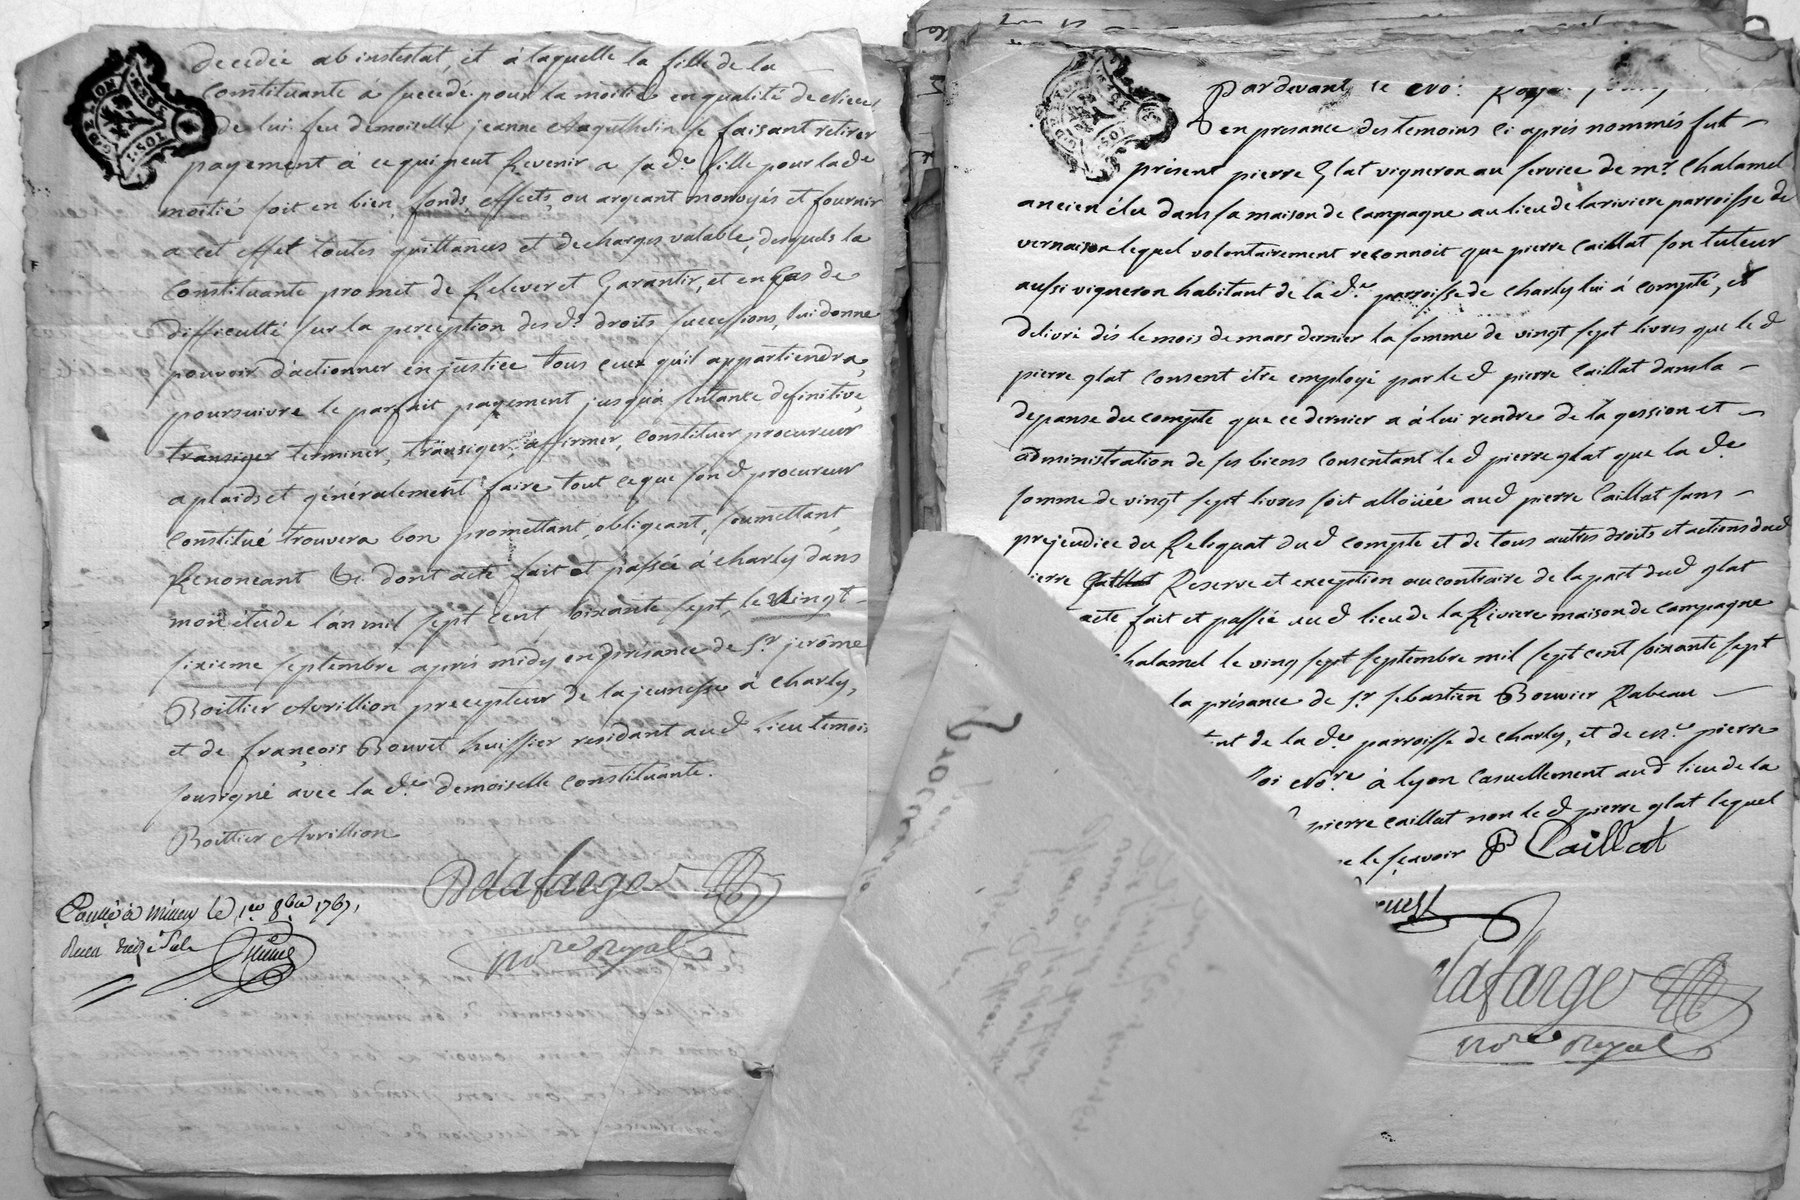 decedée ab instestat, et à laquelle la fille de la
Constituante à succédé pour la moitié en qualité de niece
de lui feu demoiselle jeanne se faisant retirer
payement à ce qui peut Revenir a sa de. fille pour lade
moitié soit en bien, fonds, effects, ou argeant monoyés et fournir
a cet effet toutes quittances et decharges valable, desquels la
Constituante promet de Relever et Garantir, et en Cas de
difficultté sur la perception des ds. droits successions, lui donne
pouvoir d'actionner en justice tous ceux qu'il appartiendra,
poursuivre le parfait payement jusqu'a sentance definitive,
transiger terminer, transiger, affirmer, constituer procureur
a plaids et généralement faire tout ce que son d procureur
Constitué trouvera bon promettant, obligeant, soumettant,
Renonceant &c dont acte fait et passée à charly dans
mon étude l'an mil sept cent soixante sept, le vingt
sixieme septembre aprés midy en présance de Sr. jerôme
Boittier Avrillion precepteur de la jeunesse à Charly,
et de françois Bouvet huissier residant aud. Lieu temois
sousigné avec la de. demoiselle constituante.
Boittier Avrillion
Delafarge
nore royal
a le 1er 8bre 1767,
Recu Sols
Pardevant le no: Royal
en presance des temoins ci aprés nommés fut
présent pierre Glat vigneron au service de mr. Chalamel
ancien élu dans sa maison de campagne au lieu de la riviere parroisse de
vernaison lequel volontairement reconnoit que pierre Caillat son tuteur
aussi vigneron habitant de la de. parroisse de charly lui à compté, et
delivré dés le mois de mars dernier la somme de vingt sept livres que le d
pierre glat consent être employé par le d pierre Caillat dans la
depanse du compte que ce dernier a à lui rendre de la gession et
administration de ses biens consentant le d pierre glat que la de.
somme de vingt sept livres soit alloüée aud pierre Caillat sans
prejeudice du Reliquat dud compte et de tous autres droits et actions dud
ierre Caillat Reserve et exception au contraire de la part dud glat
acte fait et passé aud lieu de la Riviere maison de campagne
halamel le ving sept septembre mil sept cent soixante sept
la présance de Sr sebastien Bouvier Rabeau
de la de. parroisse de charly, et de me. pierre
nore. à lyon casuellement aud lieu de la
pierre caillat non le d pierre glat lequel
le sçavoir P Caillat
lafarge
nore royal